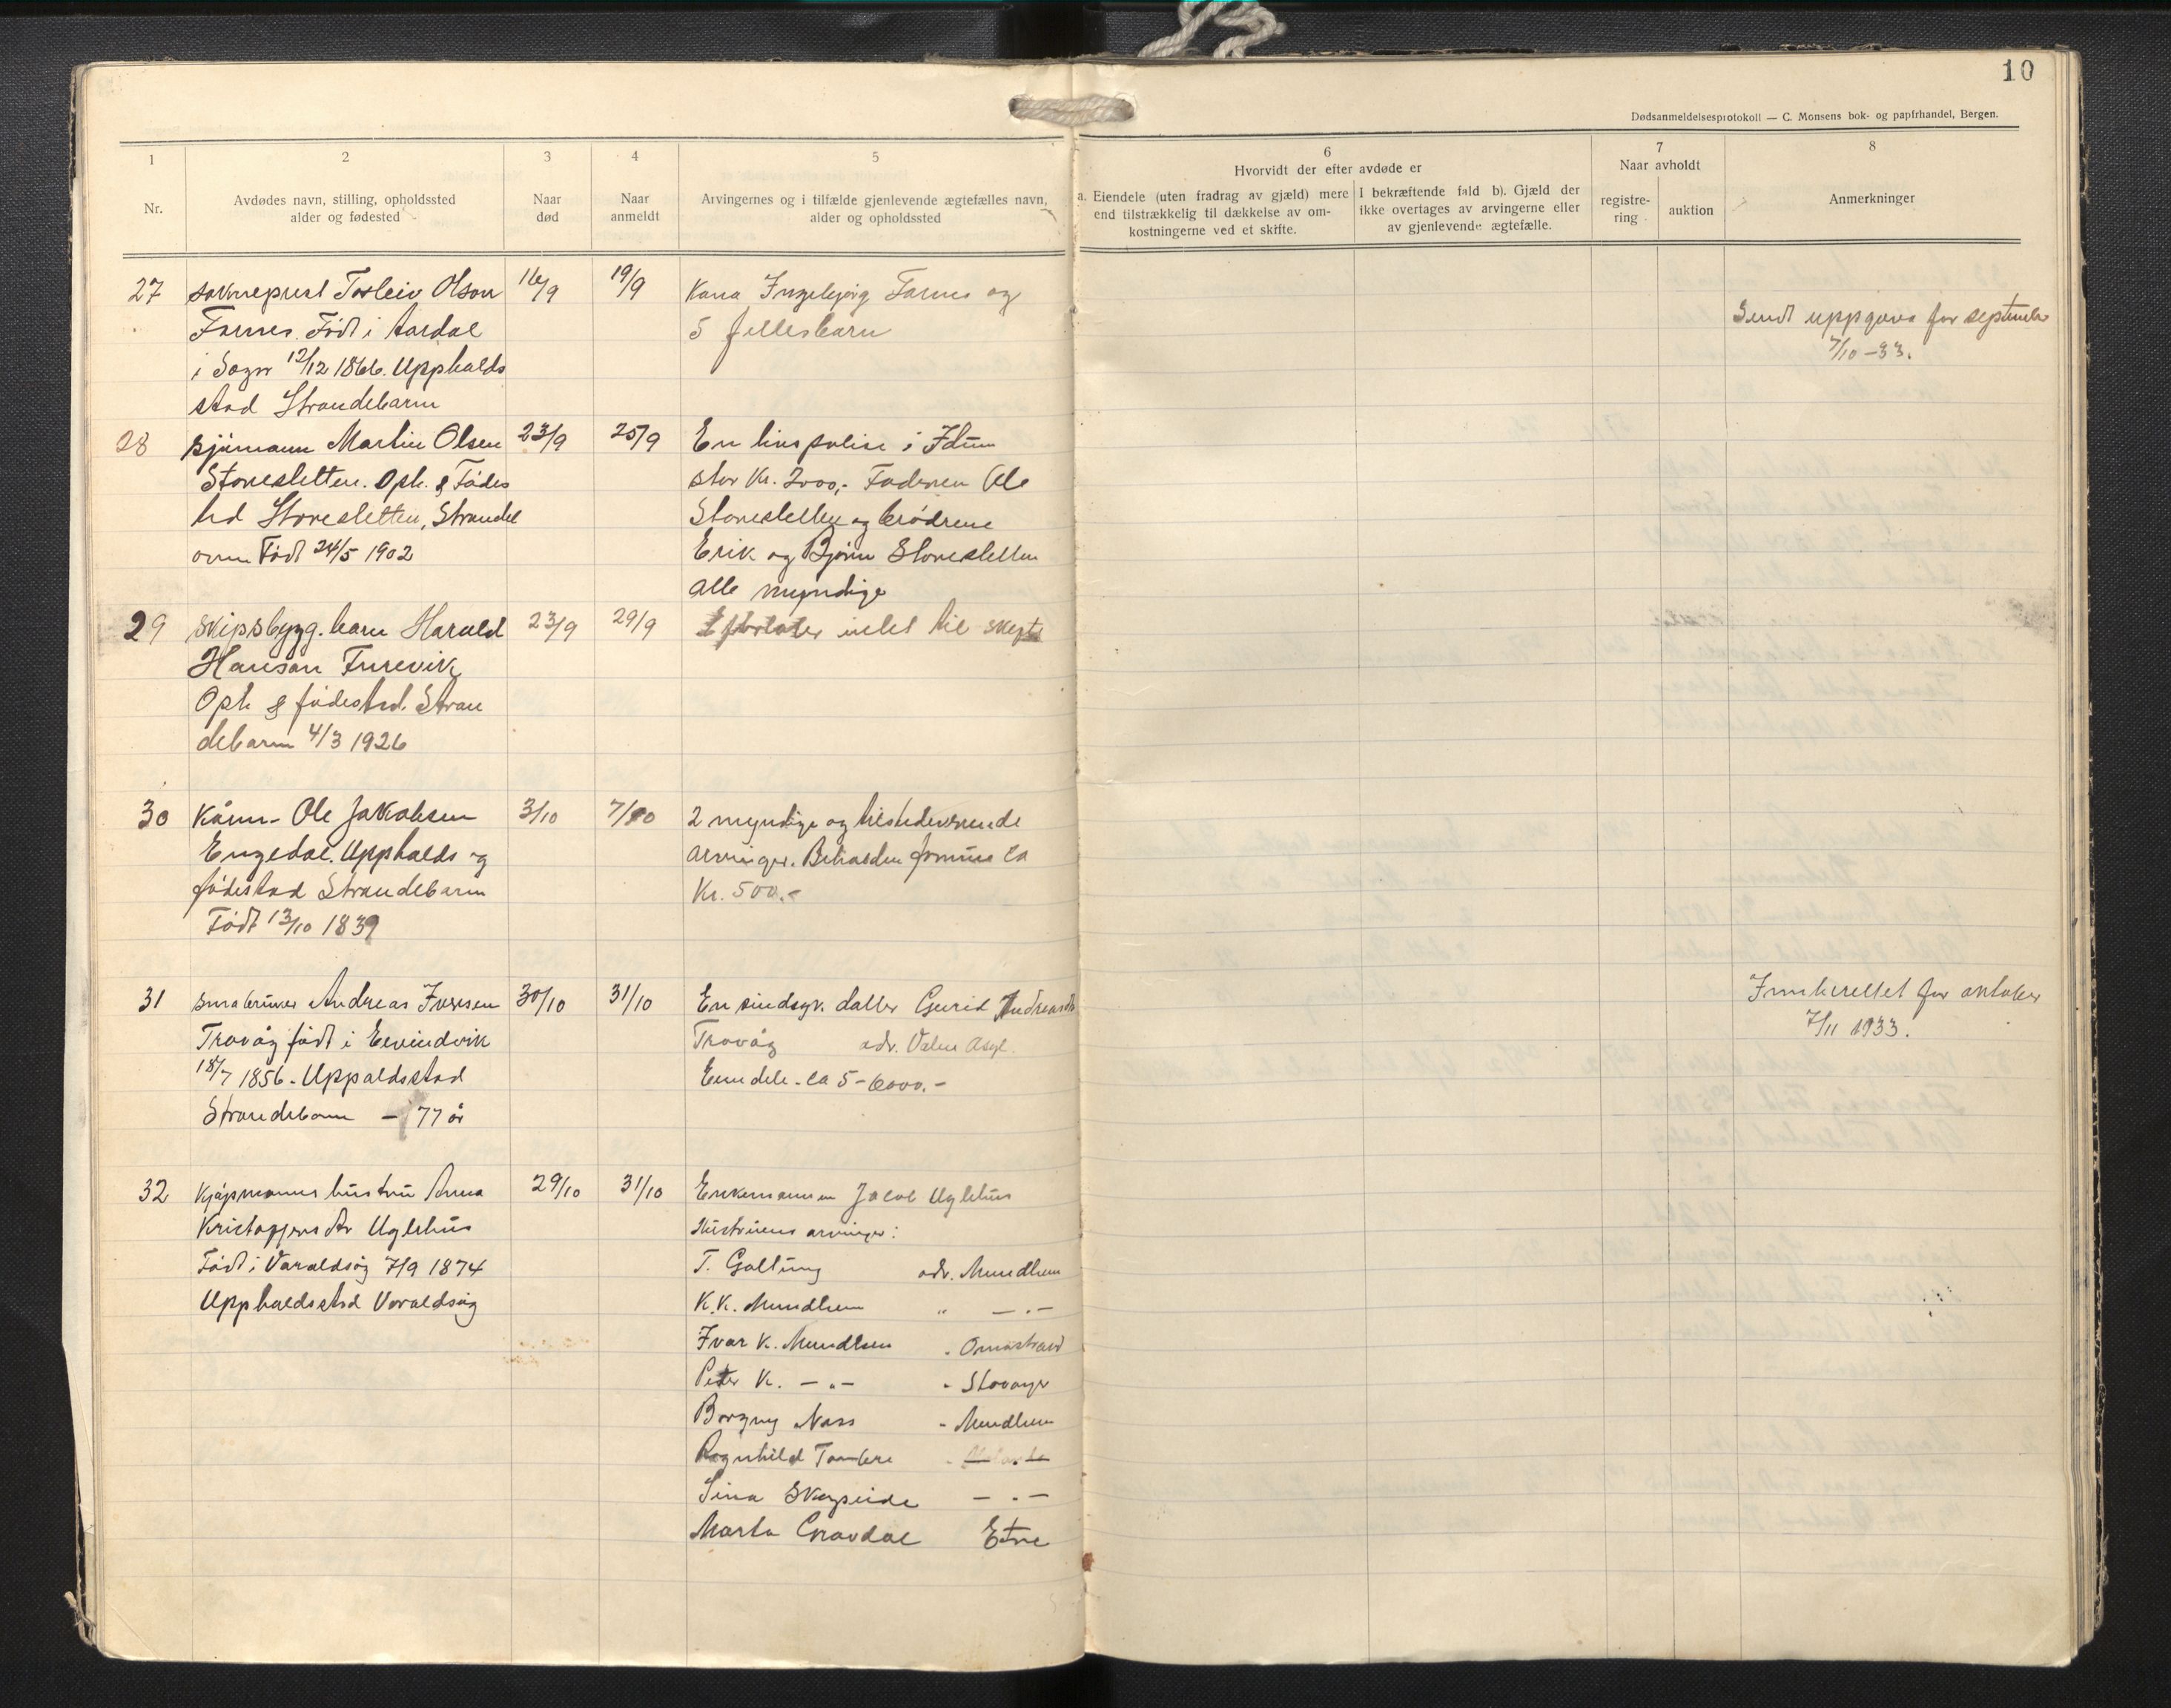 10
Dødsanmeldelsesprotokoll — C. Monsens bok- og papirhandel, Bergen.
1
Nr.
2
Avdødes navn, stilling, opholdssted
alder og fødested
3
Naar
død
4
Naar
anmeldt
5
Arvingernes og i tilfælde gjenlevende ægtefælles navn,
alder og opholdssted
6
Hvorvidt der efter avdøde er
a. Eiendele (uten fradrag av gjæld) mere
end tilstrækkelig til dækkelse av om-
kostningerne ved et skifte.
I bekræftende fald b). Gjæld der
ikke overtages av arvingerne eller
av gjenlevende ægtefælle.
7
Naar avholdt
registre-
ring
auktion
8
Anmerkninger
27
sokneprest Torleiv Olson
Farnes. Født i Aardal
i Sogn 12/12 1866. Upphalds
stad Strandebarm
16/9
19/9
Kona Ingebjørg Farnes og
5 fellesbarn
Sendt uppgava for september
7/10-33.
28
sjømann Martin Olsen
Storesletten. Oph. & Fødes
tad Storesletten, Strandeb
arm Født 24/5 1902
23/9
25/9
En livspolise i Idun
stor Kr. 2000,- Faderen Ole
Storesletten og brødrene
Erik og Bjørn Storesletten
alle myndige
29
skipsbygg. barn Harald
Hansson Furevik
Oph & fødestad. Stran
debarm 4/3 1926
23/9
29/9
Efterlater intet til skifte
30
Kårm. Ole Jakobsen
Engedal. Upphalds og
fødestad Strandebarm
Født 13/10 1839
3/10
7/10
2 myndige og tilstedeværende
arvinger. Beholden formue ca
Kr. 500.-
31
småbruker Andreas Iversen
Travåg født i Eevindvik
18/7 1856. Uppaldsstad
Strandebarm - 77 år
30/10
31/10
En sindsyk. datter Gurid Andreasdtr
Travåg adr. Valen Asyl.
Eiendele. ca 5-6000.-
Innberettet for oktober
7/11 1933.
32
Kjøpmanns hustru Anna
Kristoffersdtr Uglehus
Født i Varaldsøy 7/9 1874
Upphaldsstad Varaldsøy
29/10
31/10
Enkemannen Jacob Uglehus
Hustruens arvinger:
T. Galtung adr. Mundheim
K.K. Mundheim " — . —
Ivar K. Mundheim " Omastrand
Peter K. — " — " Stavanger
Borgny Nass " Mundheim
Ragnhild — . —
Sina Skeypeide — . —
Marta Gravdal Etne